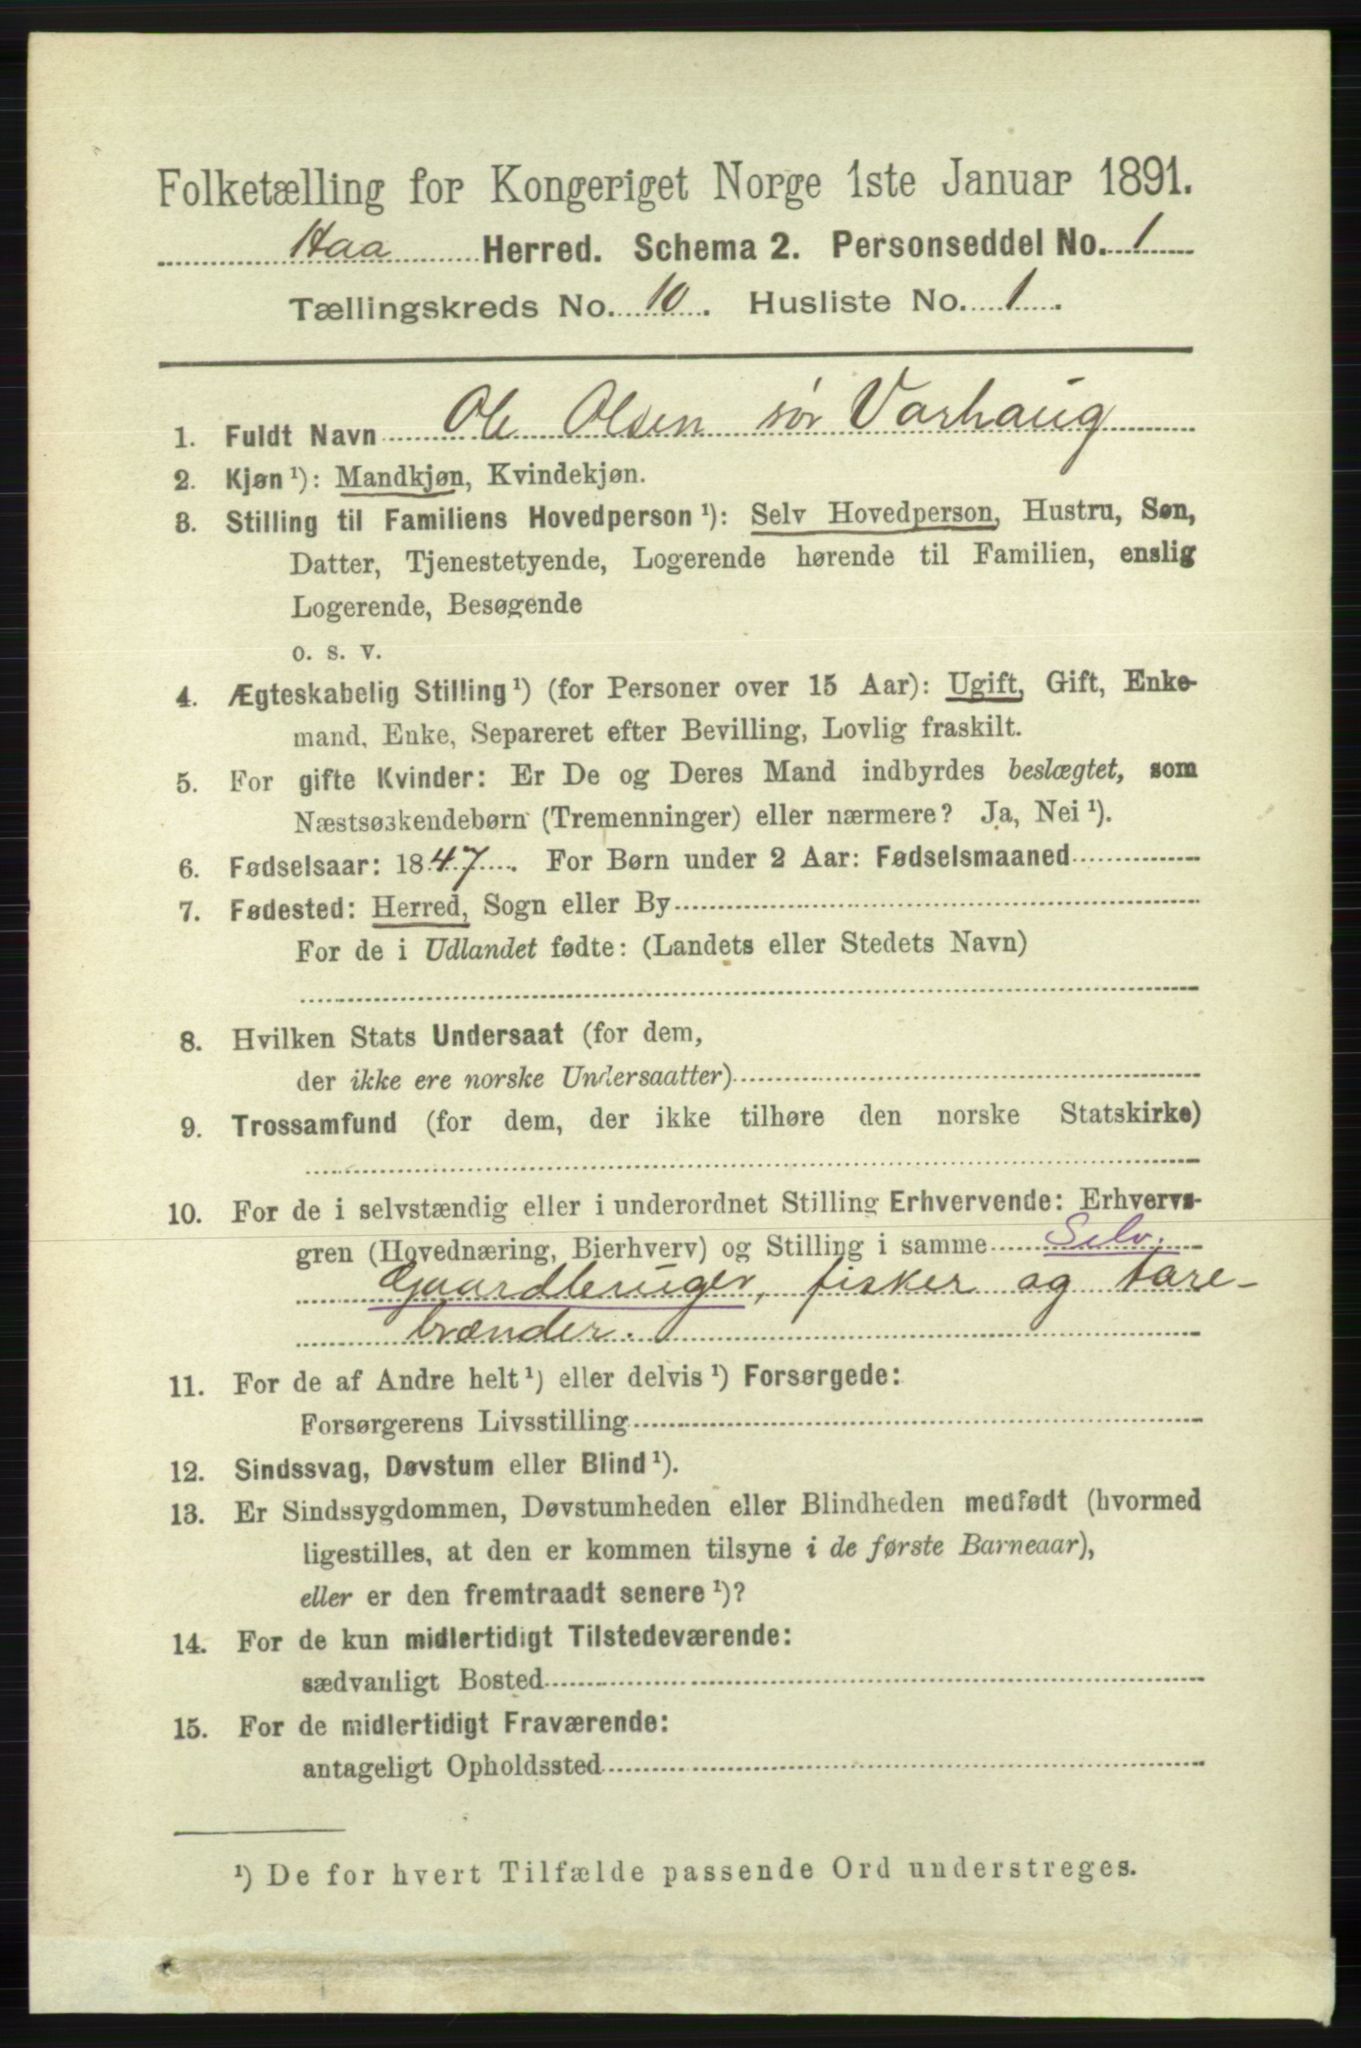 Folketælling for Kongeriget Norge 1ste Januar 1891.
Haa Herred. Schema 2. Personseddel No. 1
Tællingskreds No. 10. Husliste No. 1.
1. Fuldt Navn Ole Olsen sør Varhaug
2. Kjøn ¹): Mandkjøn, Kvindekjøn.
3. Stilling til Familiens Hovedperson ¹): Selv Hovedperson, Hustru, Søn,
Datter, Tjenestetyende, Logerende hørende til Familien, enslig
Logerende, Besøgende
o. s. v.
4. Ægteskabelig Stilling ¹) (for Personer over 15 Aar): Ugift, Gift, Enke-
mand, Enke, Separeret efter Bevilling, Lovlig fraskilt.
5. For gifte Kvinder: Er De og Deres Mand indbyrdes beslægtet, som
Næstsøskendebørn (Tremenninger) eller nærmere? Ja, Nei ¹).
6. Fødselsaar: 1847. For Børn under 2 Aar: Fødselsmaaned
7. Fødested: Herred, Sogn eller By
For de i Udlandet fødte: (Landets eller Stedets Navn)
8. Hvilken Stats Undersaat (for dem,
der ikke ere norske Undersaatter)
9. Trossamfund (for dem, der ikke tilhøre den norske Statskirke)
10. For de i selvstændig eller i underordnet Stilling Erhvervende: Erhvervs-
gren (Hovednæring, Bierhverv) og Stilling i samme Selv.
Gaardbruger, fisker og tare-
brænder.
11. For de af Andre helt ¹) eller delvis ¹) Forsørgede:
Forsørgerens Livsstilling
12. Sindssvag, Døvstum eller Blind ¹).
13. Er Sindssygdommen, Døvstumheden eller Blindheden medfødt (hvormed
ligestilles, at den er kommen tilsyne i de første Barneaar),
eller er den fremtraadt senere ¹)?
14. For de kun midlertidigt Tilstedeværende:
sædvanligt Bosted
15. For de midlertidigt Fraværende:
antageligt Opholdssted
¹) De for hvert Tilfælde passende Ord understreges.